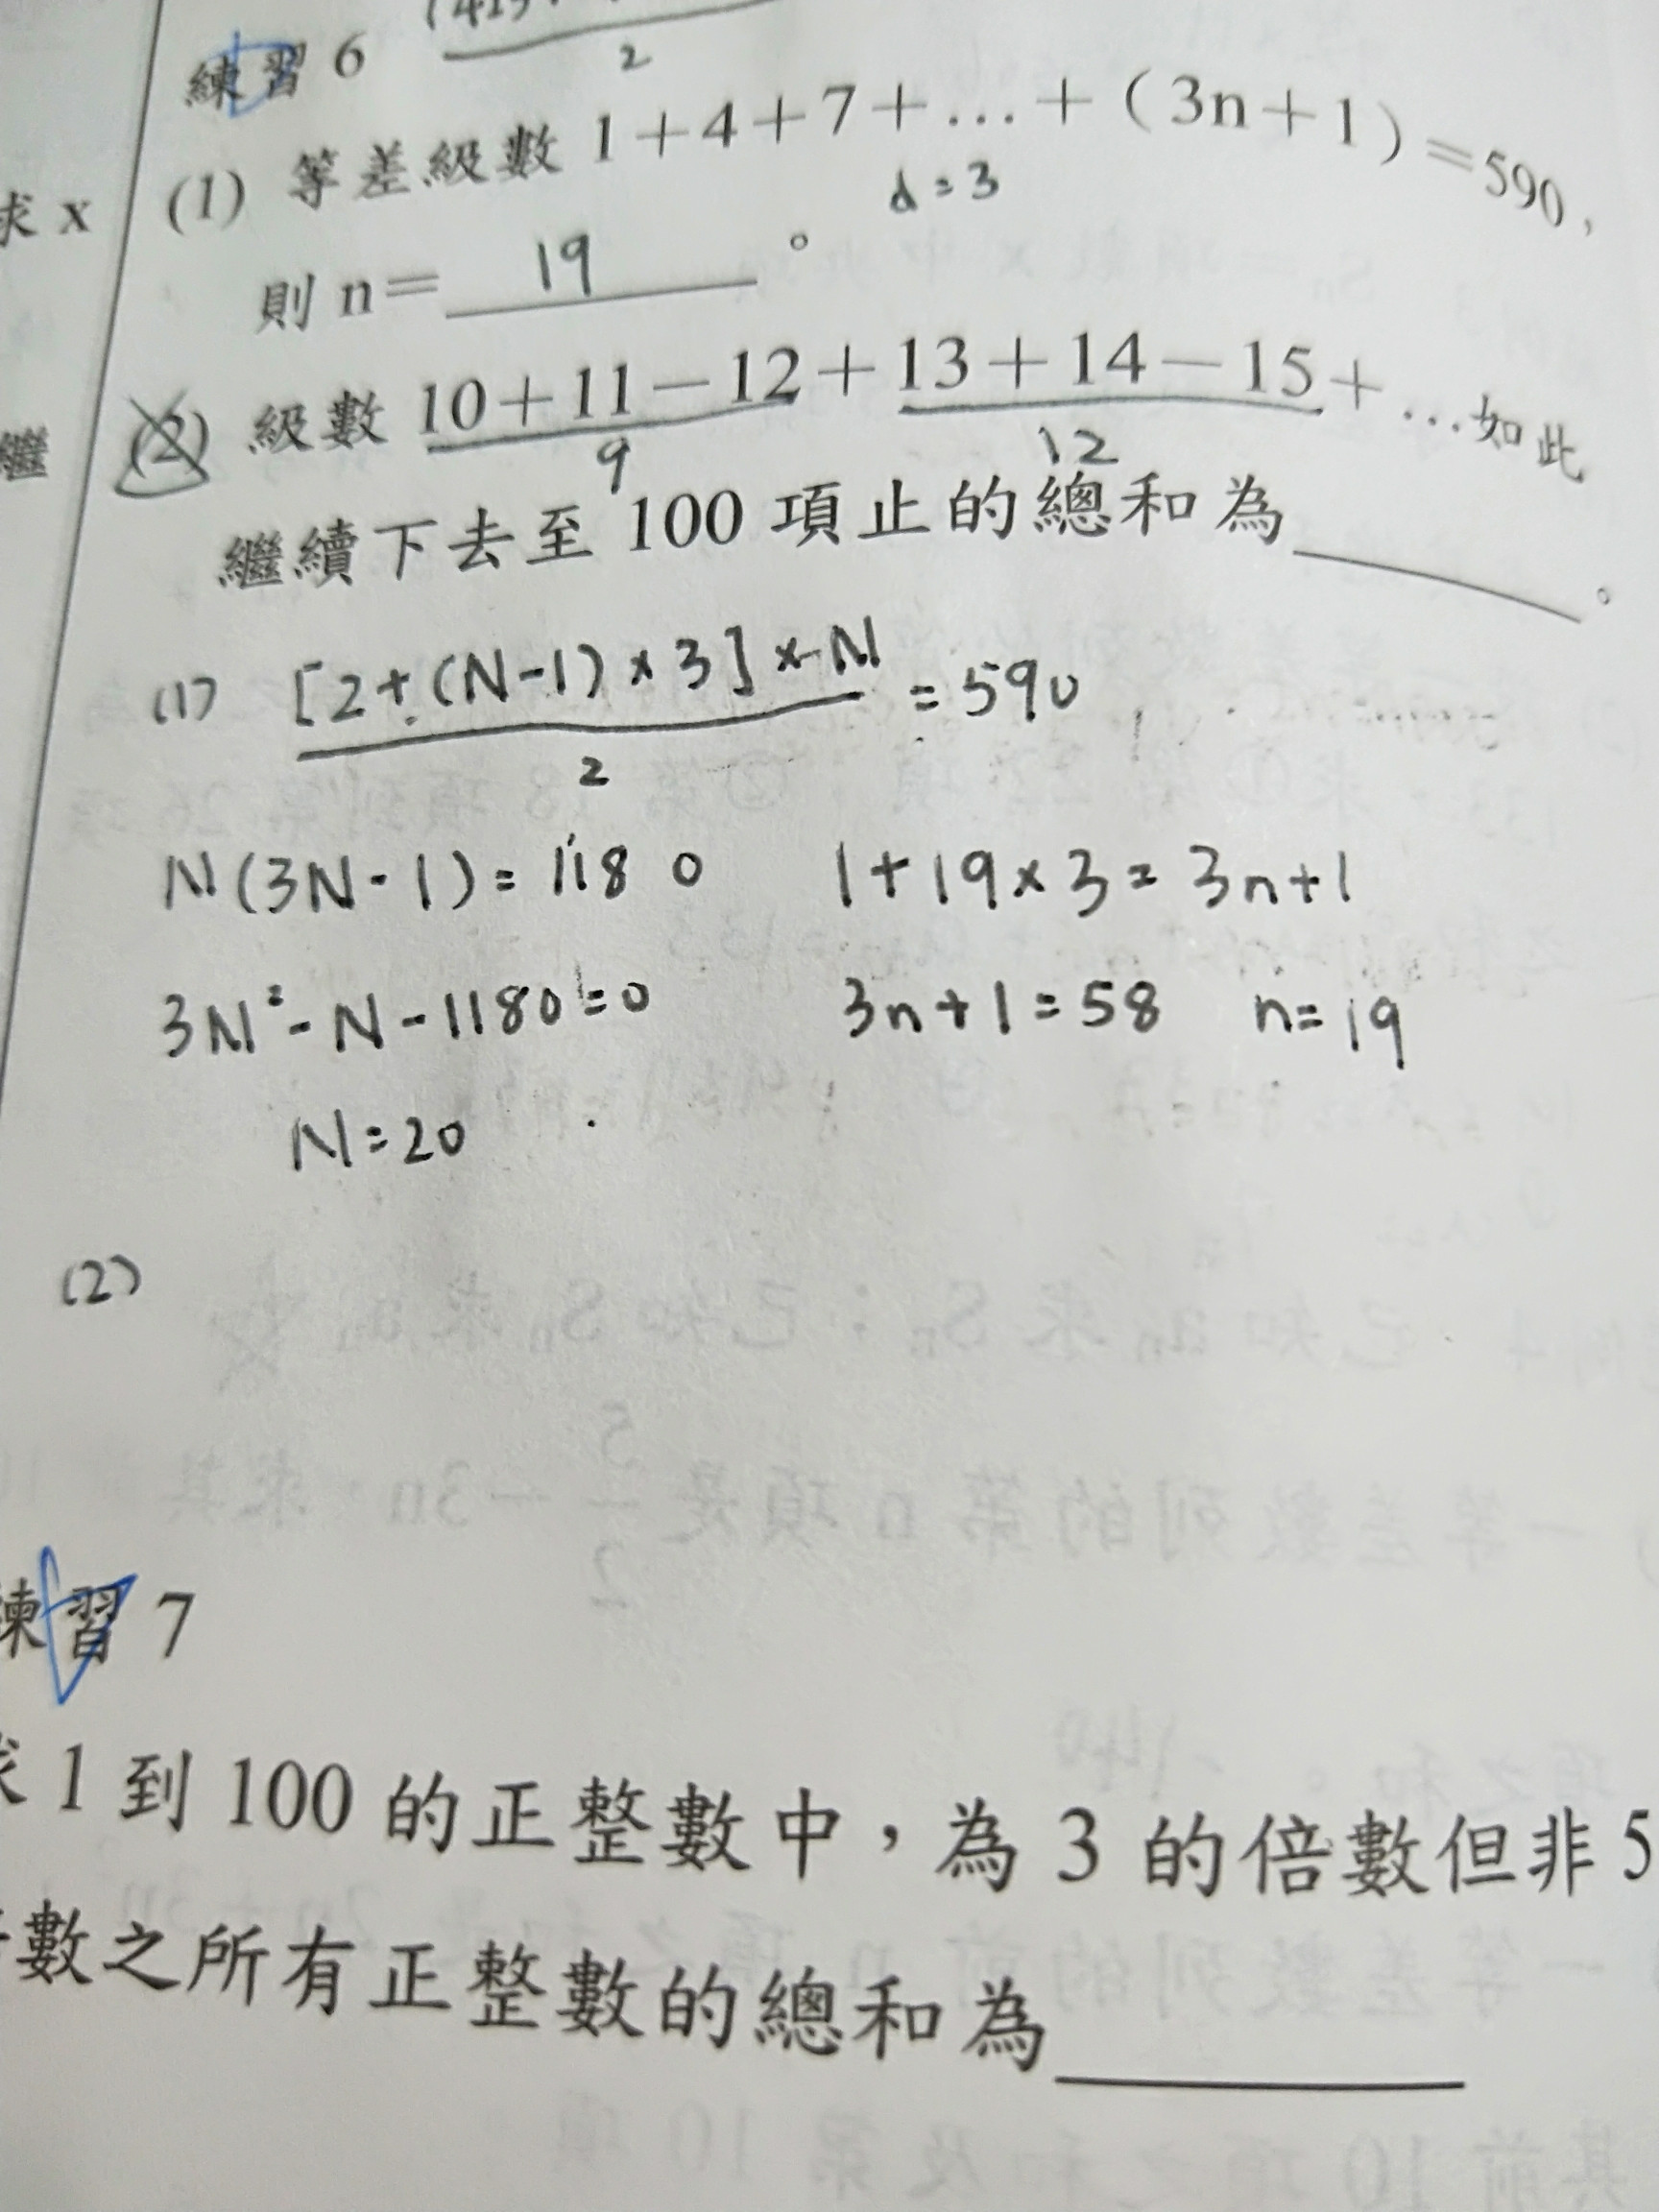 練習 6
2
(1) 等差級數 1+4+7+…+(3n+1)=590,
d=3
求 x
則 n= 19 。
繼 (2) 級數 10+11-12+13+14-15+…如此
9 12
繼續下去至 100 項止的總和為____。
(1) [2+(N-1)×3]×N = 590
2
N(3N-1)=1180 1+19×3=3n+1
3N²-N-1180=0 3n+1=58 n=19
N=20
(2)
練習 7
求 1 到 100 的正整數中,為 3 的倍數但非 5
數之所有正整數的總和為____